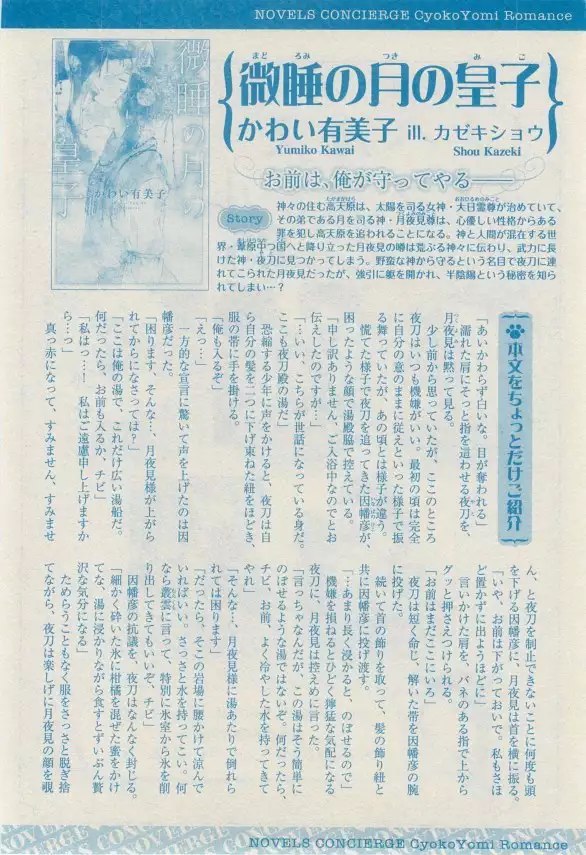 NOVELS CONCIERGE CyokoYomi Romance
微睡の月の皇子
かわい有美子
微睡の月の皇子
まどろみ つき みこ
かわい有美子 ill. カゼキショウ
Yumiko Kawai Shou Kazeki
お前は、俺が守ってやる――
Story
神々の住む高天原は、太陽を司る女神・大日霊尊が治めていて、
その弟である月を司る神・月夜見尊は、心優しい性格からある
罪を犯し高天原を追われることになる。神と人間が混在する世
界・葦原中つ国へと降り立った月夜見の噂は荒ぶる神々に伝わり、武力に長
けた神・夜刀に見つかってしまう。野蛮な神から守るという名目で夜刀に連
れてこられた月夜見だったが、強引に躯を開かれ、半陰陽という秘密を知ら
れてしまい…？
本文をちょっとだけご紹介
「あいかわらず白いな。目が奪われる」
濡れた肩にそっと指を這わせる夜刀を、
月夜見は黙って見る。
少し前から思っていたが、ここのところ
夜刀はいつも機嫌がいい。最初の頃は完全
に自分の意のままに従えといった様子で振
る舞っていたが、あの頃とは様子が違う。
慌てた様子で夜刀を追ってきた因幡彦が、
困ったような顔で湯殿脇で控えている。
「申し訳ありません、ご入浴中なのでとお
伝えしたのですが…」
「…いい、こちらが世話になっている身だ。
ここも夜刀殿の湯だ」
恐縮する少年に声をかけると、夜刀は自
ら自分の髪を二つに下げ束ねた紐をほどき、
服の帯に手を掛ける。
「俺も入るぞ」
「えっ…」
一方的な宣言に驚いて声を上げたのは因
幡彦だった。
「困ります、そんな…、月夜見様が上がら
れてからになさっては？」
「ここは俺の湯で、これだけ広い湯船だ。
何だったら、お前も入るか、チビ」
「私はっ…！　私はご遠慮申し上げますか
ら…っ」
真っ赤になって、すみません、すみませ
ん、と夜刀を制止できないことに何度も頭
を下げる因幡彦に、月夜見は首を横に振る。
「いや、お前は下がっておいで。私もさほ
ど置かずに出ようほどに」
言いかけた肩を、バネのある指で上から
グッと押さえつけられる。
「お前はまだここにいろ」
夜刀は短く命じ、解いた帯を因幡彦の腕
に投げた。
続いて首の飾りを取って、髪の飾り紐と
共に因幡彦に投げ渡す。
「…あまり長く浸かると、のぼせるので」
機嫌を損ねるとひどく獰猛な気配になる
夜刀に、月夜見は控えめに言った。
「言っちゃなんだが、この湯はそう簡単に
のぼせるような湯ではないぞ。何だったら、
チビ、お前、よく冷やした水を持ってきて
やれ」
「そんな…、月夜見様に湯あたりで倒れら
れては困ります」
「だったら、そこの岩場に腰かけて涼んで
いればいい。さっさと水を持ってこい。何
なら叢雲に言って、特別に氷室から氷を削
り出してきてもいいぞ、チビ」
因幡彦の抗議を、夜刀はなんなく封じる。
「細かく砕いた氷に柑橘を混ぜた蜜をかけ
てな、湯に浸かりながら食すとずいぶん贅
沢な気分になる」
ためらうこともなく服をさっさと脱ぎ捨
てながら、夜刀は楽しげに月夜見の顔を覗
NOVELS CONCIERGE CyokoYomi Romance